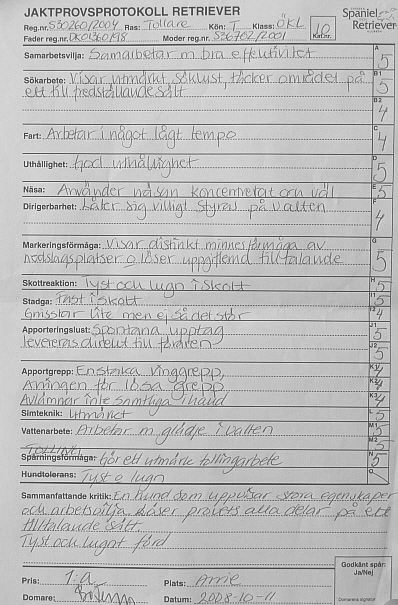 JAKTPROVSPROTOKOLL RETRIEVER
Spaniel Retriever
Reg.nr. S30260/2004 Ras: Tollare Kön: T Klass: ÖKL
Fader reg.nr. Moder reg.nr. S36702/2001 10 Kat.nr.
Samarbetsvilja: Samarbetar m bra effektivitet A 5
Sökarbete: Visar utmärkt söklust, täcker området på B1 5
ett tillfredställande sätt
B2 4
Fart: Arbetar i något lågt tempo C 4
Uthållighet: God uthållighet D 5
Näsa: Använder näsan koncentretat och väl E 5
Dirigerbarhet: Låter sig villigt styras på vatten F 4
Markeringsförmåga: Visar distinkt minnesförmåga av G 5
nedslagsplatser o löser uppgifterna tilltalande
Skottreaktion: Tyst och lugn i skott H 5
Stadga: Fast i skott I1 5
Gnisslar lite men ej så det stör I2 4
Apporteringslust: Spontana upptag J1 5
levereras direkt till föraren J2 5
Apportgrepp: Enstaka vinggrepp, K1 4
Aningen för lösa grepp K2 4
Avlämnar inte samtliga i hand K3 4
Simteknik: Utmärkt L 5
Vattenarbete: Arbetar m glädje i vatten M1 5
M2 5
TOLLING
Spårningsförmåga: Gör ett utmärkt tollingarbete N 5
Hundtolerans: Tyst o lugn O
Sammanfattande kritik: En hund som uppvisar stora egenskaper
och arbetsvilja. Löser provets alla delar på ett
tilltalande sätt
Tyst och lugnt förd
Godkänt spår:
Ja/Nej
Pris: 1:a Plats: Arrie
Domare: Datum: 2008-10-11
Domarens signatur